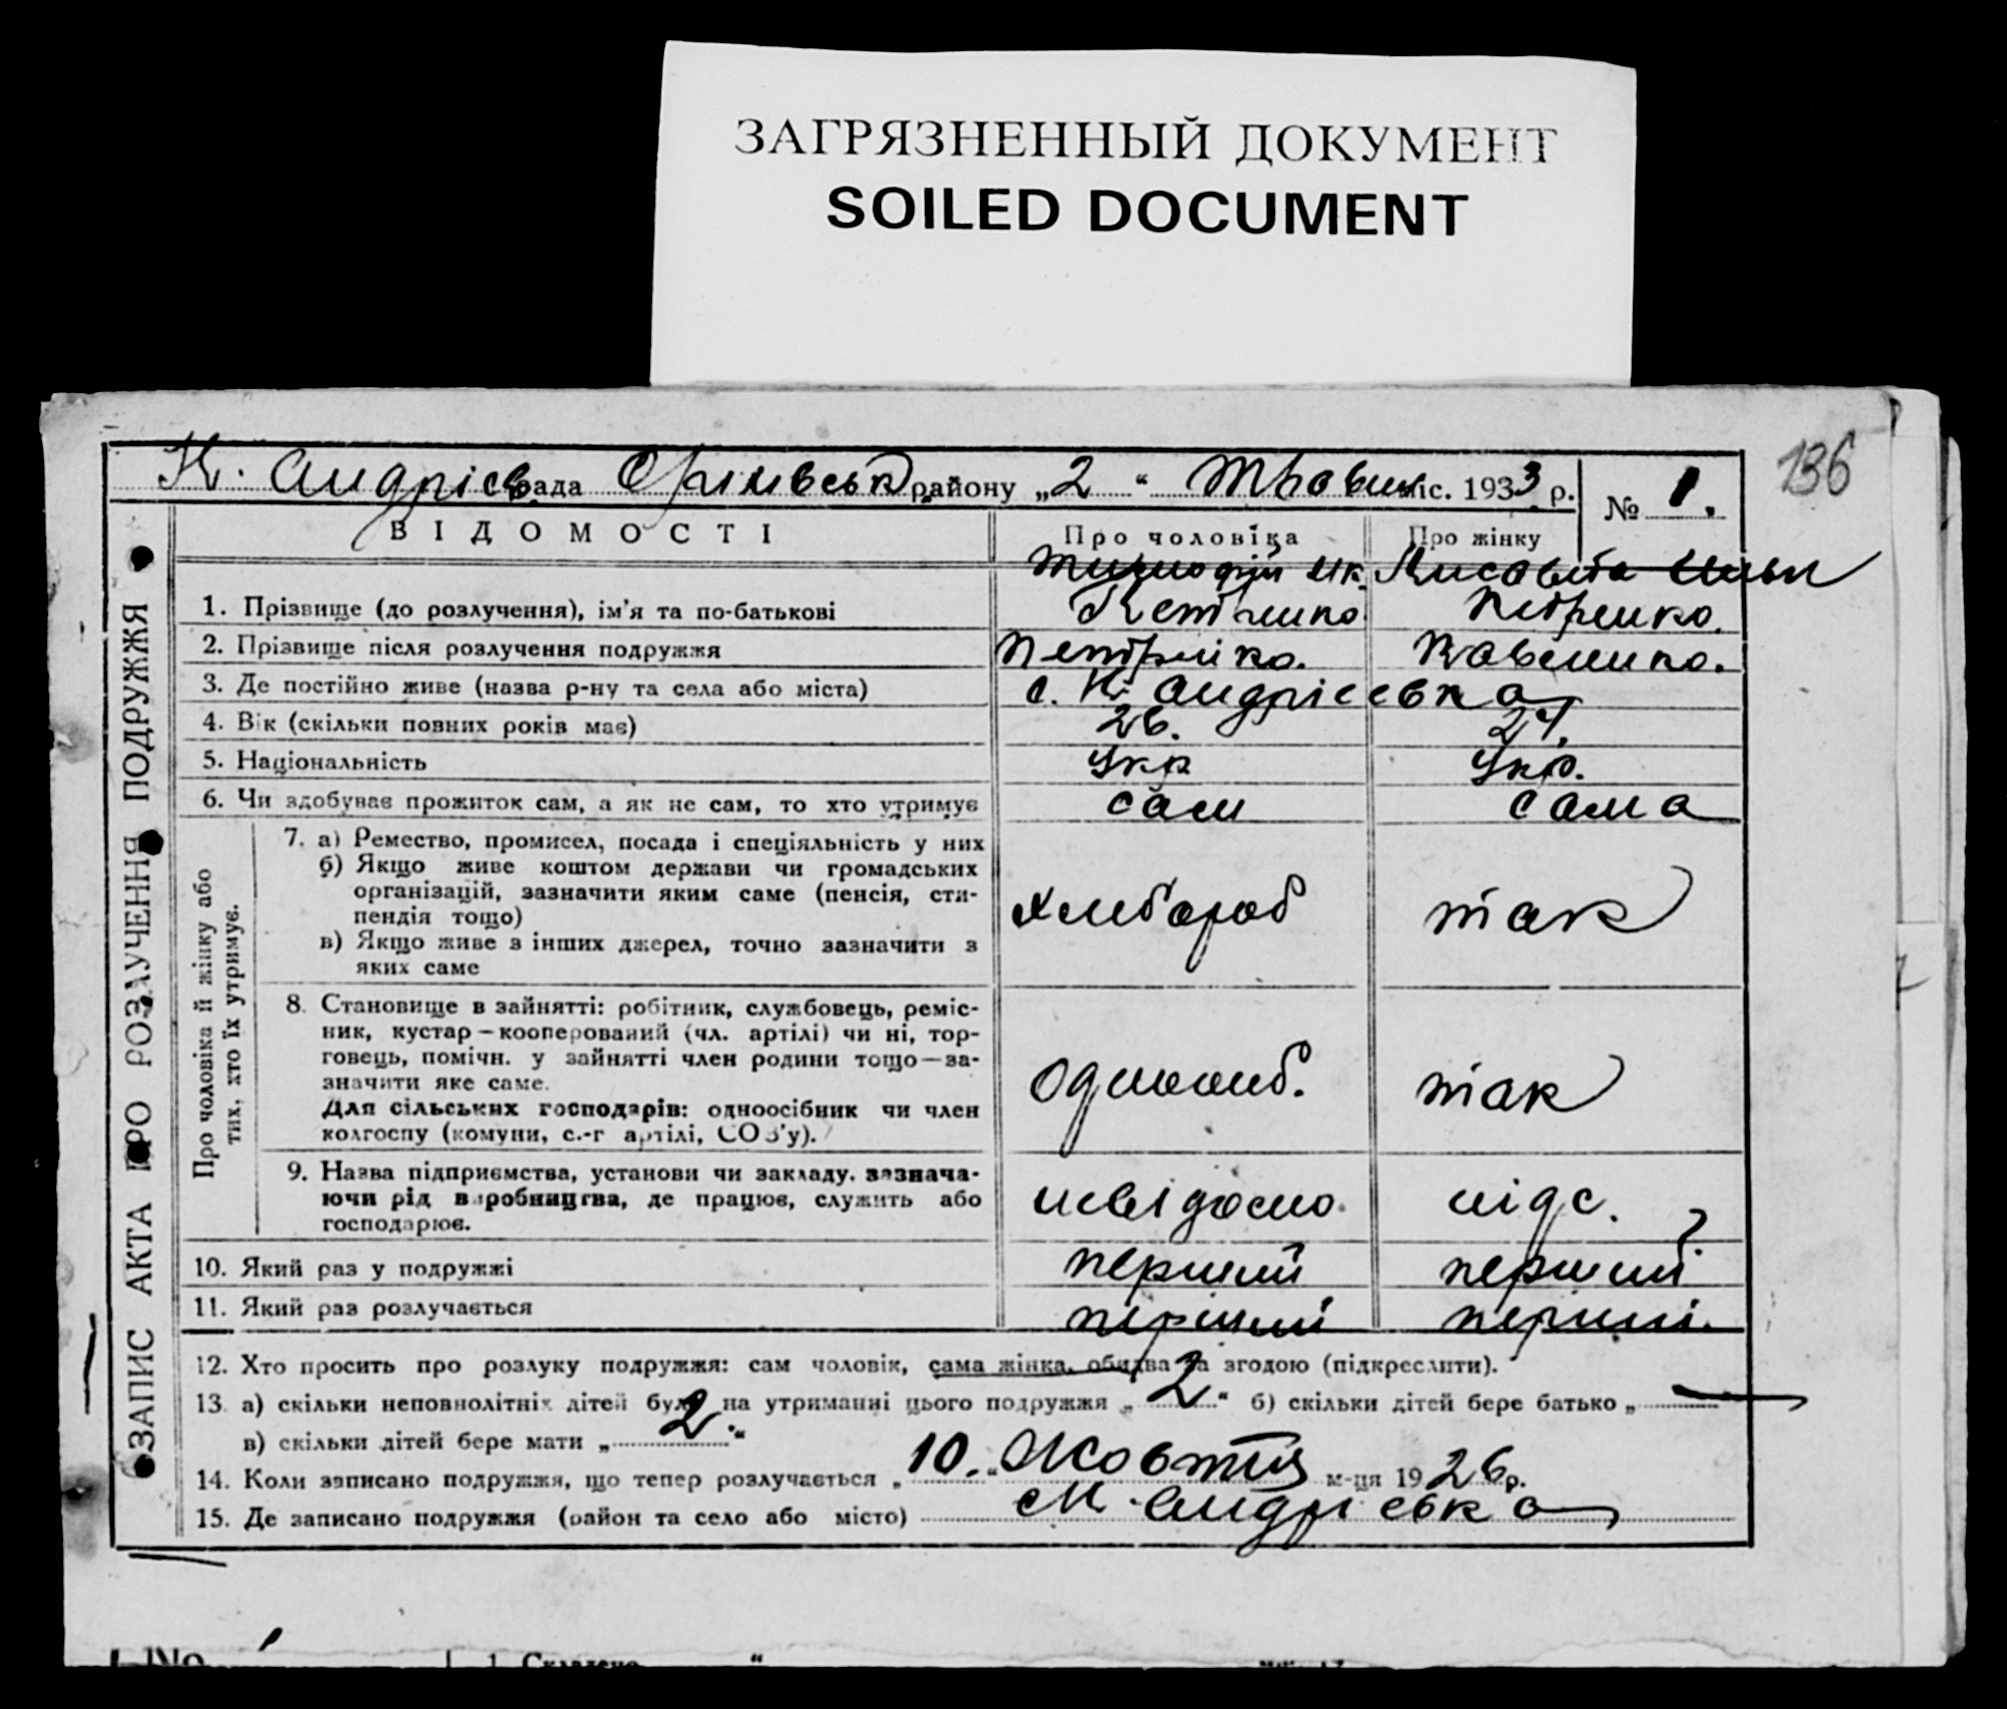 ЗАГРЯЗНЕННЫЙ ДОКУМЕНТ
SOILED DOCUMENT
136
К. Андрієв рада Оріхівськ району „2“ Травня міс. 1933 р. № 1.
ЗАПИС АКТА ПРО РОЗЛУЧЕННЯ ПОДРУЖЖЯ
ВІДОМОСТІ Про чоловіка Про жінку
1. Прізвище (до розлучення), ім’я та по-батькові Петренко Петренко.
2. Прізвище після розлучення подружжя Петренко. Коваленко.
3. Де постійно живе (назва р-ну та села або міста) с. К. Андрієвка
4. Вік (скільки повних років має) 26. 27.
5. Національність Укр Укр.
6. Чи здобуває прожиток сам, а як не сам, то хто утримує сам сама
Про чоловіка й жінку або
тих, хто їх утримує.
7. а) Ремество, промисел, посада і спеціяльність у них
б) Якщо живе коштом держави чи громадських
організацій, зазначити яким саме (пенсія, сти-
пендія тощо) хлібороб так
в) Якщо живе з інших джерел, точно зазначити з
яких саме
8. Становище в зайнятті: робітник, службовець, реміс-
ник, кустар—кооперований (чл. артілі) чи ні, тор-
говець, помічн. у зайнятті член родини тощо—за-
значити яке саме. одноосіб. так
Для сільських господарів: одноосібник чи член
колгоспу (комуни, с.-г артілі, СОЗ’у).
9. Назва підприємства, установи чи закладу, зазнача-
ючи рід виробництва, де працює, служить або невідомо
господарює.
10. Який раз у подружжі перший перший
11. Який раз розлучається перший перший.
12. Хто просить про розлуку подружжя: сам чоловік, сама жінка, обидва за згодою (підкреслити).
13. а) скільки неповнолітніх дітей було на утриманні цього подружжя „2“ б) скільки дітей бере батько „—
в) скільки дітей бере мати „2.“
14. Коли записано подружжя, що тепер розлучається „10.“ Жовтня м-ця 1926 р.
15. Де записано подружжя (район та село або місто) Андрієвка
№ 1. Складено “